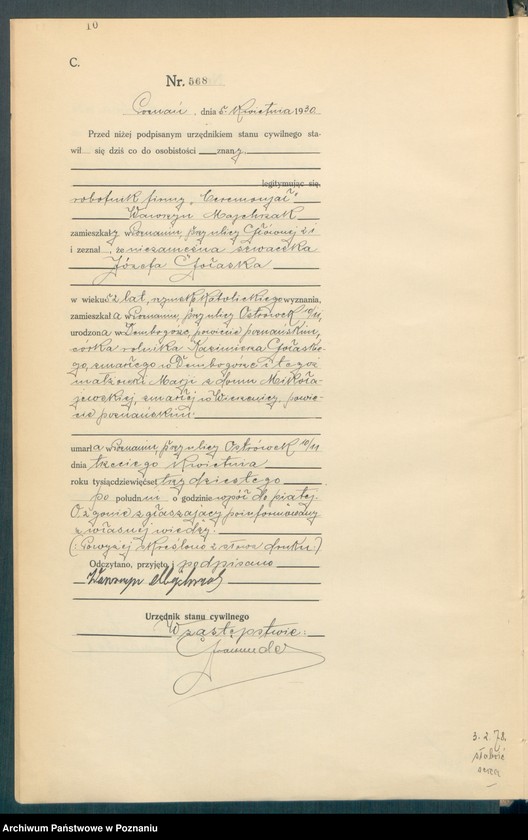 C.
Nr. 568
Poznań, dnia 5. Kwietnia 1930
Przed niżej podpisanym urzędnikiem stanu cywilnego sta-
wił się dziś co do osobistości znany
legitymując się,
robotnik firmy „Ceremonjał"
Wawrzyn Majchrzak
zamieszkały w Poznaniu, przy ulicy Głównej 21
i zeznał, że niezamężna szwaczka
Józefa Głaska
w wieku lat, rzymsko Katolickiego wyznania,
zamieszkała w Poznaniu, przy ulicy Ostrówek 10/11
urodzona w Dembogórze, powiecie poznańskim,
córka rolnika Kazimierza Głaskie-
go, zmarłego w Dembogórze i tegoż
małżonki Marji z domu Mikoła-
jewskiej, zmarłej w Wierzenicy, powie-
cie poznańskim
umarła w Poznaniu, przy ulicy Ostrówek 10/11
dnia trzeciego Kwietnia
roku tysiącdziewięćset trzydziestego
po południu o godzinie wpół do piątej.
O zgonie zgłaszający poinformowany
z własnej wiedzy.
(Powyżej skreślono 2 słowa druku.)
Odczytano, przyjęto i podpisano
Wawrzyn Majchrzak
Urzędnik stanu cywilnego
W zastępstwie:
3. 2. 78.
słabość
serca
Archiwum Państwowe w Poznaniu